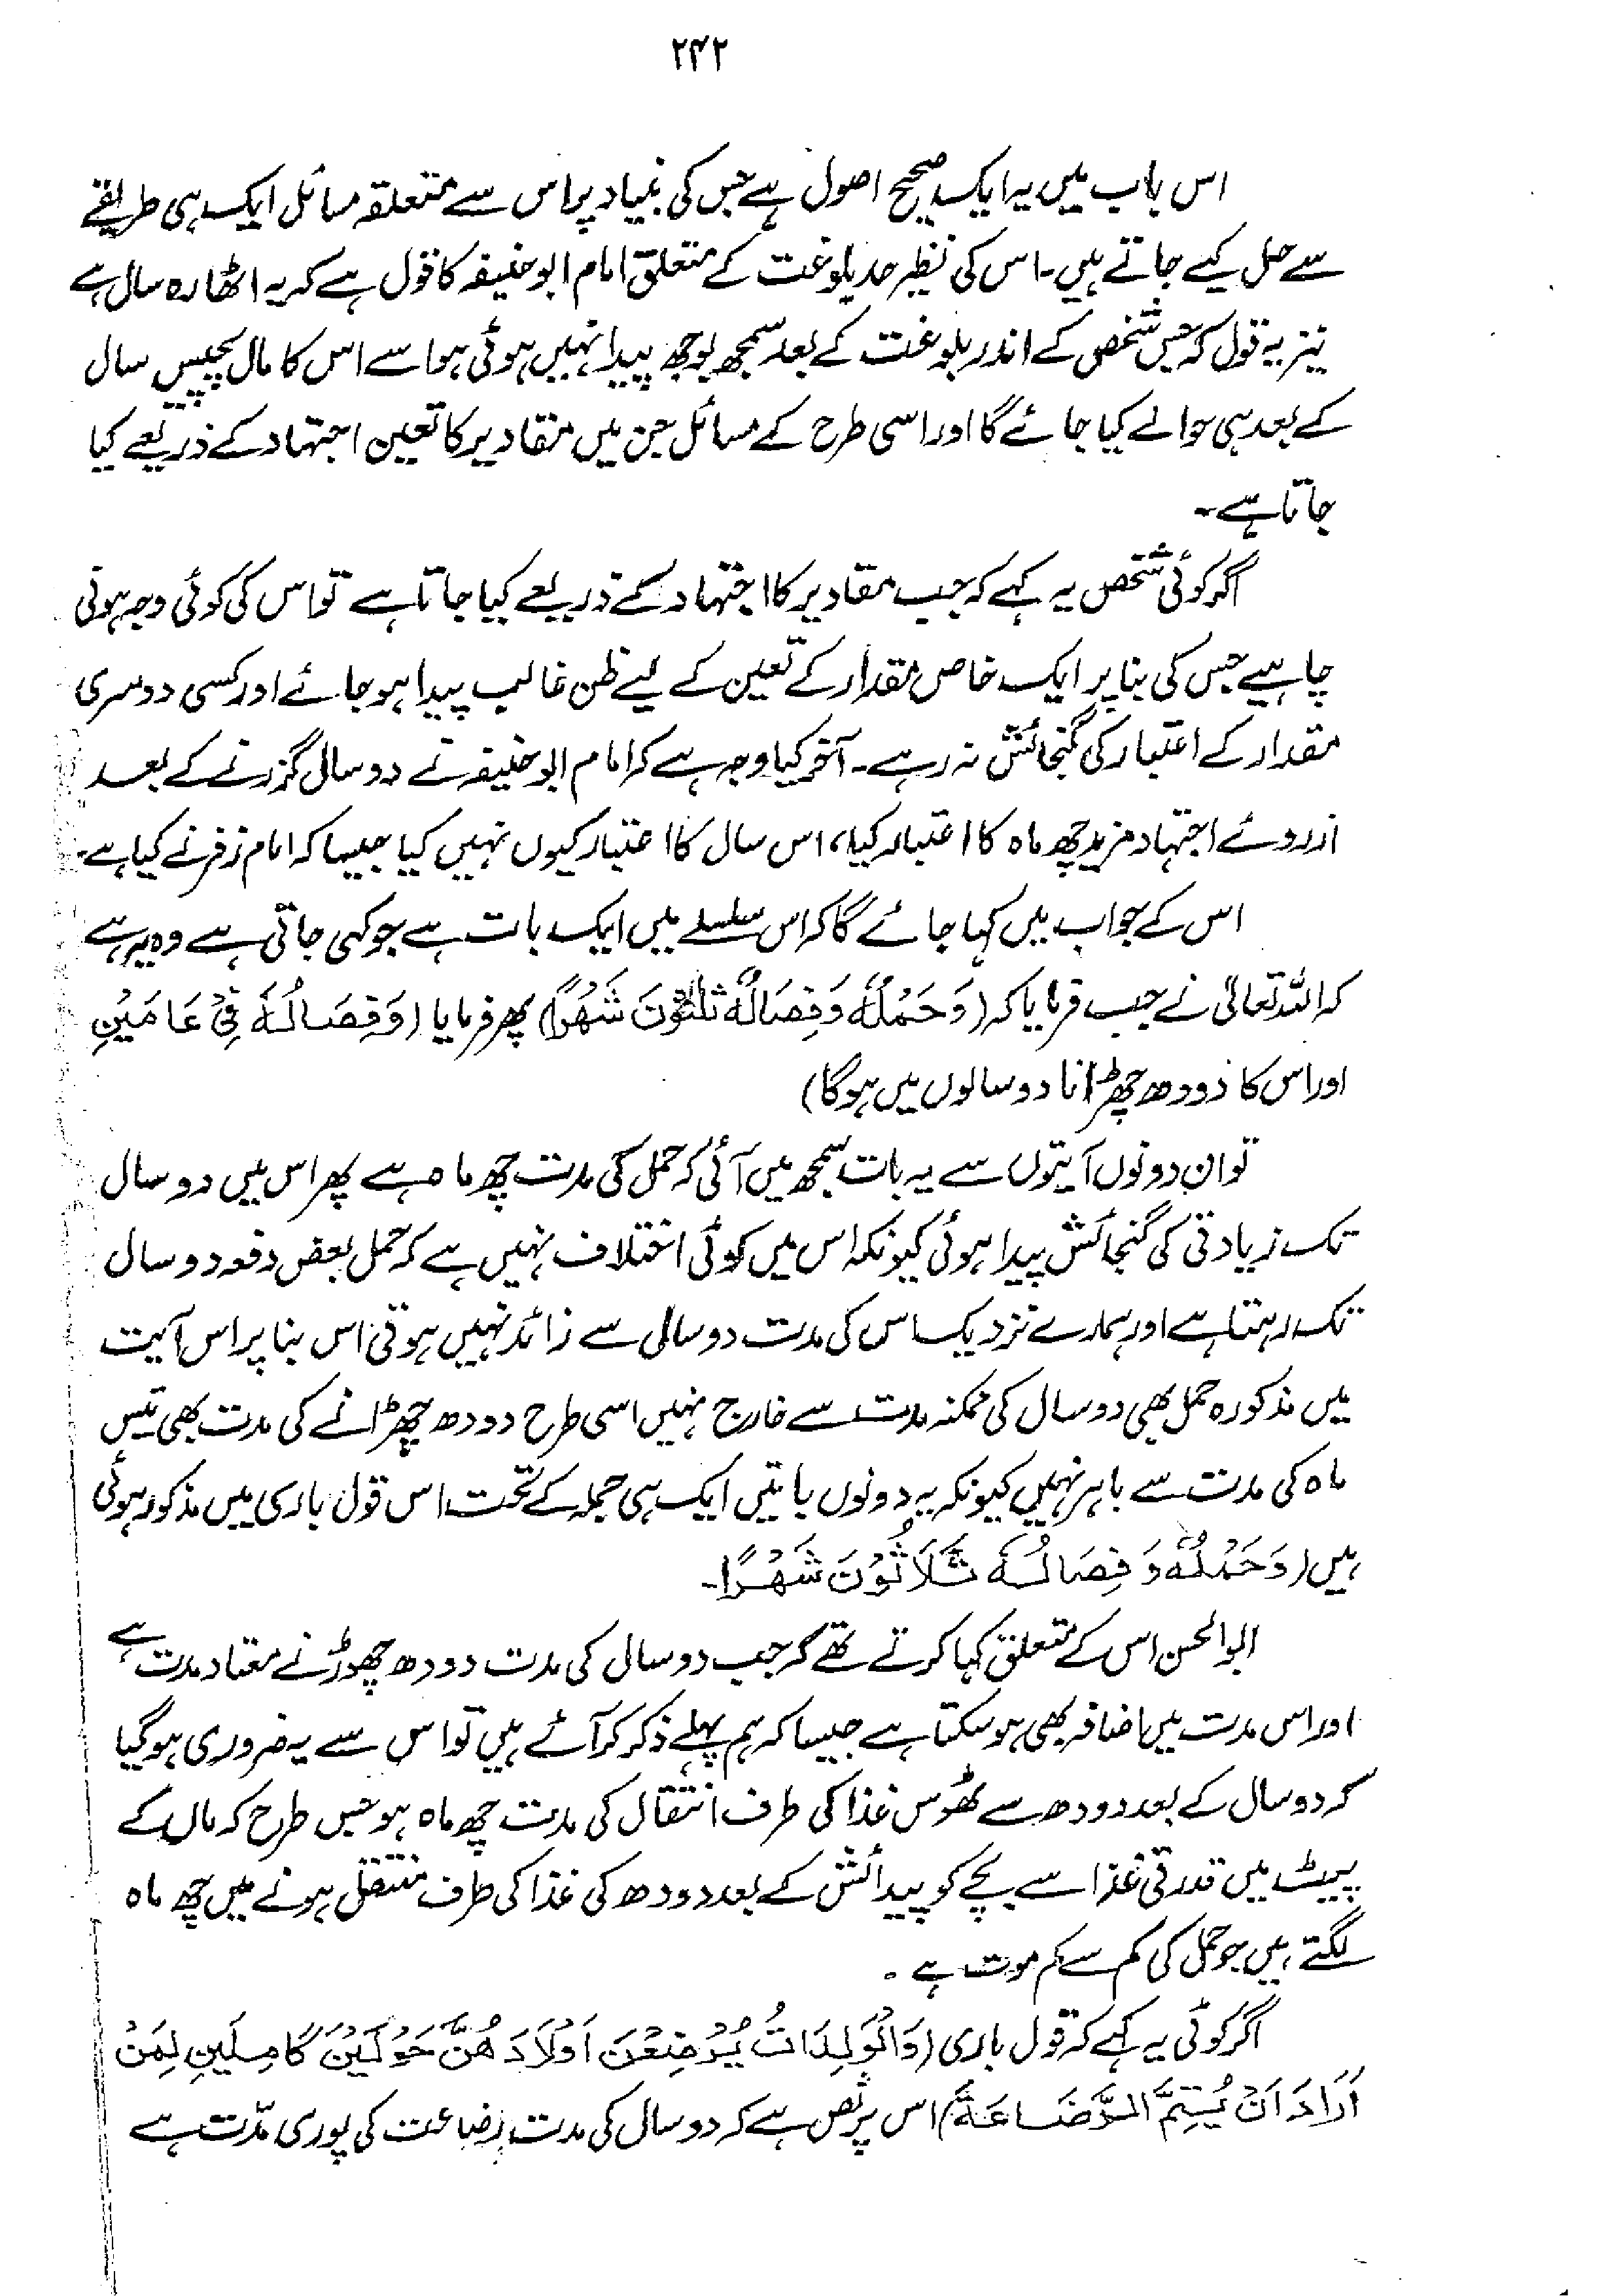 ۲۴۲
اس باب میں یہ ایک صحیح اصول ہے جس کی بنیاد پر اس سے متعلقہ مسائل ایک ہی طریقے
سے حل کیے جاتے ہیں۔ اس کی نظیر حد بلوغت کے متعلق امام ابوحنیفہ کا قول ہے کہ یہ اٹھارہ سال ہے
نیز یہ قول کہ جس شخص کے اندر بلوغت کے بعد سمجھ بوجھ پیدا نہیں ہوئی ہو اسے اس کا مال پچیس سال
کے بعد ہی حوالے کیا جائے گا اور اسی طرح کے مسائل جن میں مقادیر کا تعین اجتہاد کے ذریعے کیا
جاتا ہے۔
اگر کوئی شخص یہ کہے کہ جب مقادیر کا اجتہاد کے ذریعے کیا جاتا ہے تو اس کی کوئی وجہ ہونی
چاہیے جس کی بنا پر ایک خاص مقدار کے تعین کے لیے ظن غالب پیدا ہو جائے اور کسی دوسری
مقدار کے اعتبار کی گنجائش نہ رہے۔ آخر کیا وجہ ہے کہ امام ابوحنیفہ نے دو سال گزرنے کے بعد
ازروئے اجتہاد مزید چھ ماہ کا اعتبار کیا، اس سال کا اعتبار کیوں نہیں کیا جیسا کہ امام زفر نے کیا ہے۔
اس کے جواب میں کہا جائے گا کہ اس سلسلے میں ایک بات ہے جو کہی جاتی ہے وہ یہ ہے
کہ اللہ تعالیٰ نے جب فرمایا کہ (وَحَمْلُهُ وَفِصَالُهُ ثَلٰثُوْنَ شَهْرًا) پھر فرمایا (وَفِصَالُهُ فِيْ عَامَيْنِ
اور اس کا دودھ چھڑانا دو سالوں میں ہوگا)
تو ان دونوں آیتوں سے یہ بات سمجھ میں آئی کہ حمل کی مدت چھ ماہ ہے پھر اس میں دو سال
تک زیادتی کی گنجائش پیدا ہوئی کیونکہ اس میں کوئی اختلاف نہیں ہے کہ حمل بعض دفعہ دو سال
تک رہتا ہے اور ہمارے نزدیک اس کی مدت دو سال سے زائد نہیں ہوتی اس بنا پر اس آیت
میں مذکورہ حمل بھی دو سال کی ممکنہ مدت سے خارج نہیں اسی طرح دودھ چھڑانے کی مدت بھی تیس
ماہ کی مدت سے باہر نہیں کیونکہ یہ دونوں باتیں ایک ہی جملہ کے تحت اس قول باری میں مذکور ہوئی
ہیں (وَحَمْلُهُ وَفِصَالُهُ ثَلَاثُوْنَ شَهْرًا۔
ابوالحسن اس کے متعلق کہا کرتے تھے کہ جب دو سال کی مدت دودھ چھوڑنے معتاد مدت ہے
اور اس مدت میں اضافہ بھی ہو سکتا ہے جیسا کہ ہم پہلے ذکر کر آئے ہیں تو اس سے یہ ضروری ہو گیا
کہ دو سال کے بعد دودھ سے ٹھوس غذا کی طرف انتقال کی مدت چھ ماہ ہو جس طرح کہ ماں کے
پیٹ میں قدرتی غذا سے بچے کو پیدائش کے بعد دودھ کی غذا کی طرف منتقل ہونے میں چھ ماہ
لگتے ہیں جو حمل کی کم سے کم موت ہے۔
اگر کوئی یہ کہے کہ قول باری (وَالْوَالِدَاتُ يُرْضِعْنَ اَوْلَادَهُنَّ حَوْلَيْنِ كَامِلَيْنِ لِمَنْ
اَرَادَ اَنْ يُتِمَّ الرَّضَاعَةَ) اس پر نص ہے کہ دو سال کی مدت رضاعت کی پوری مدّت ہے